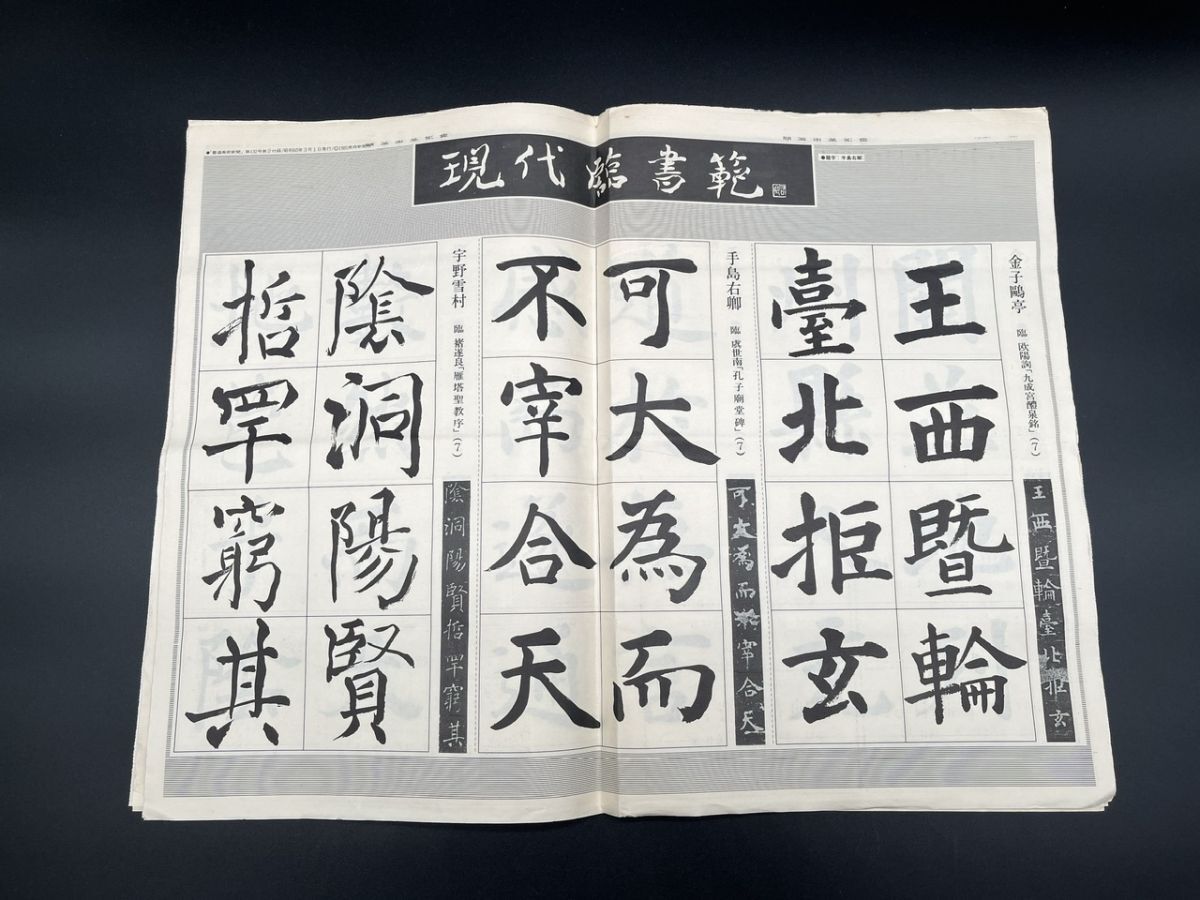 現代臨書範
●題字・手島右卿
金子鷗亭 臨 欧陽詢「九成宮醴泉銘」(7)
王西暨輪臺北拒玄
王西暨輪
臺北拒玄
手島右卿 臨 虞世南「孔子廟堂碑」(7)
可大為而不宰合天
可大為而
不宰合天
宇野雪村 臨 褚遂良「雁塔聖教序」(7)
陰洞陽賢哲罕窮其
陰洞陽賢
哲罕窮其